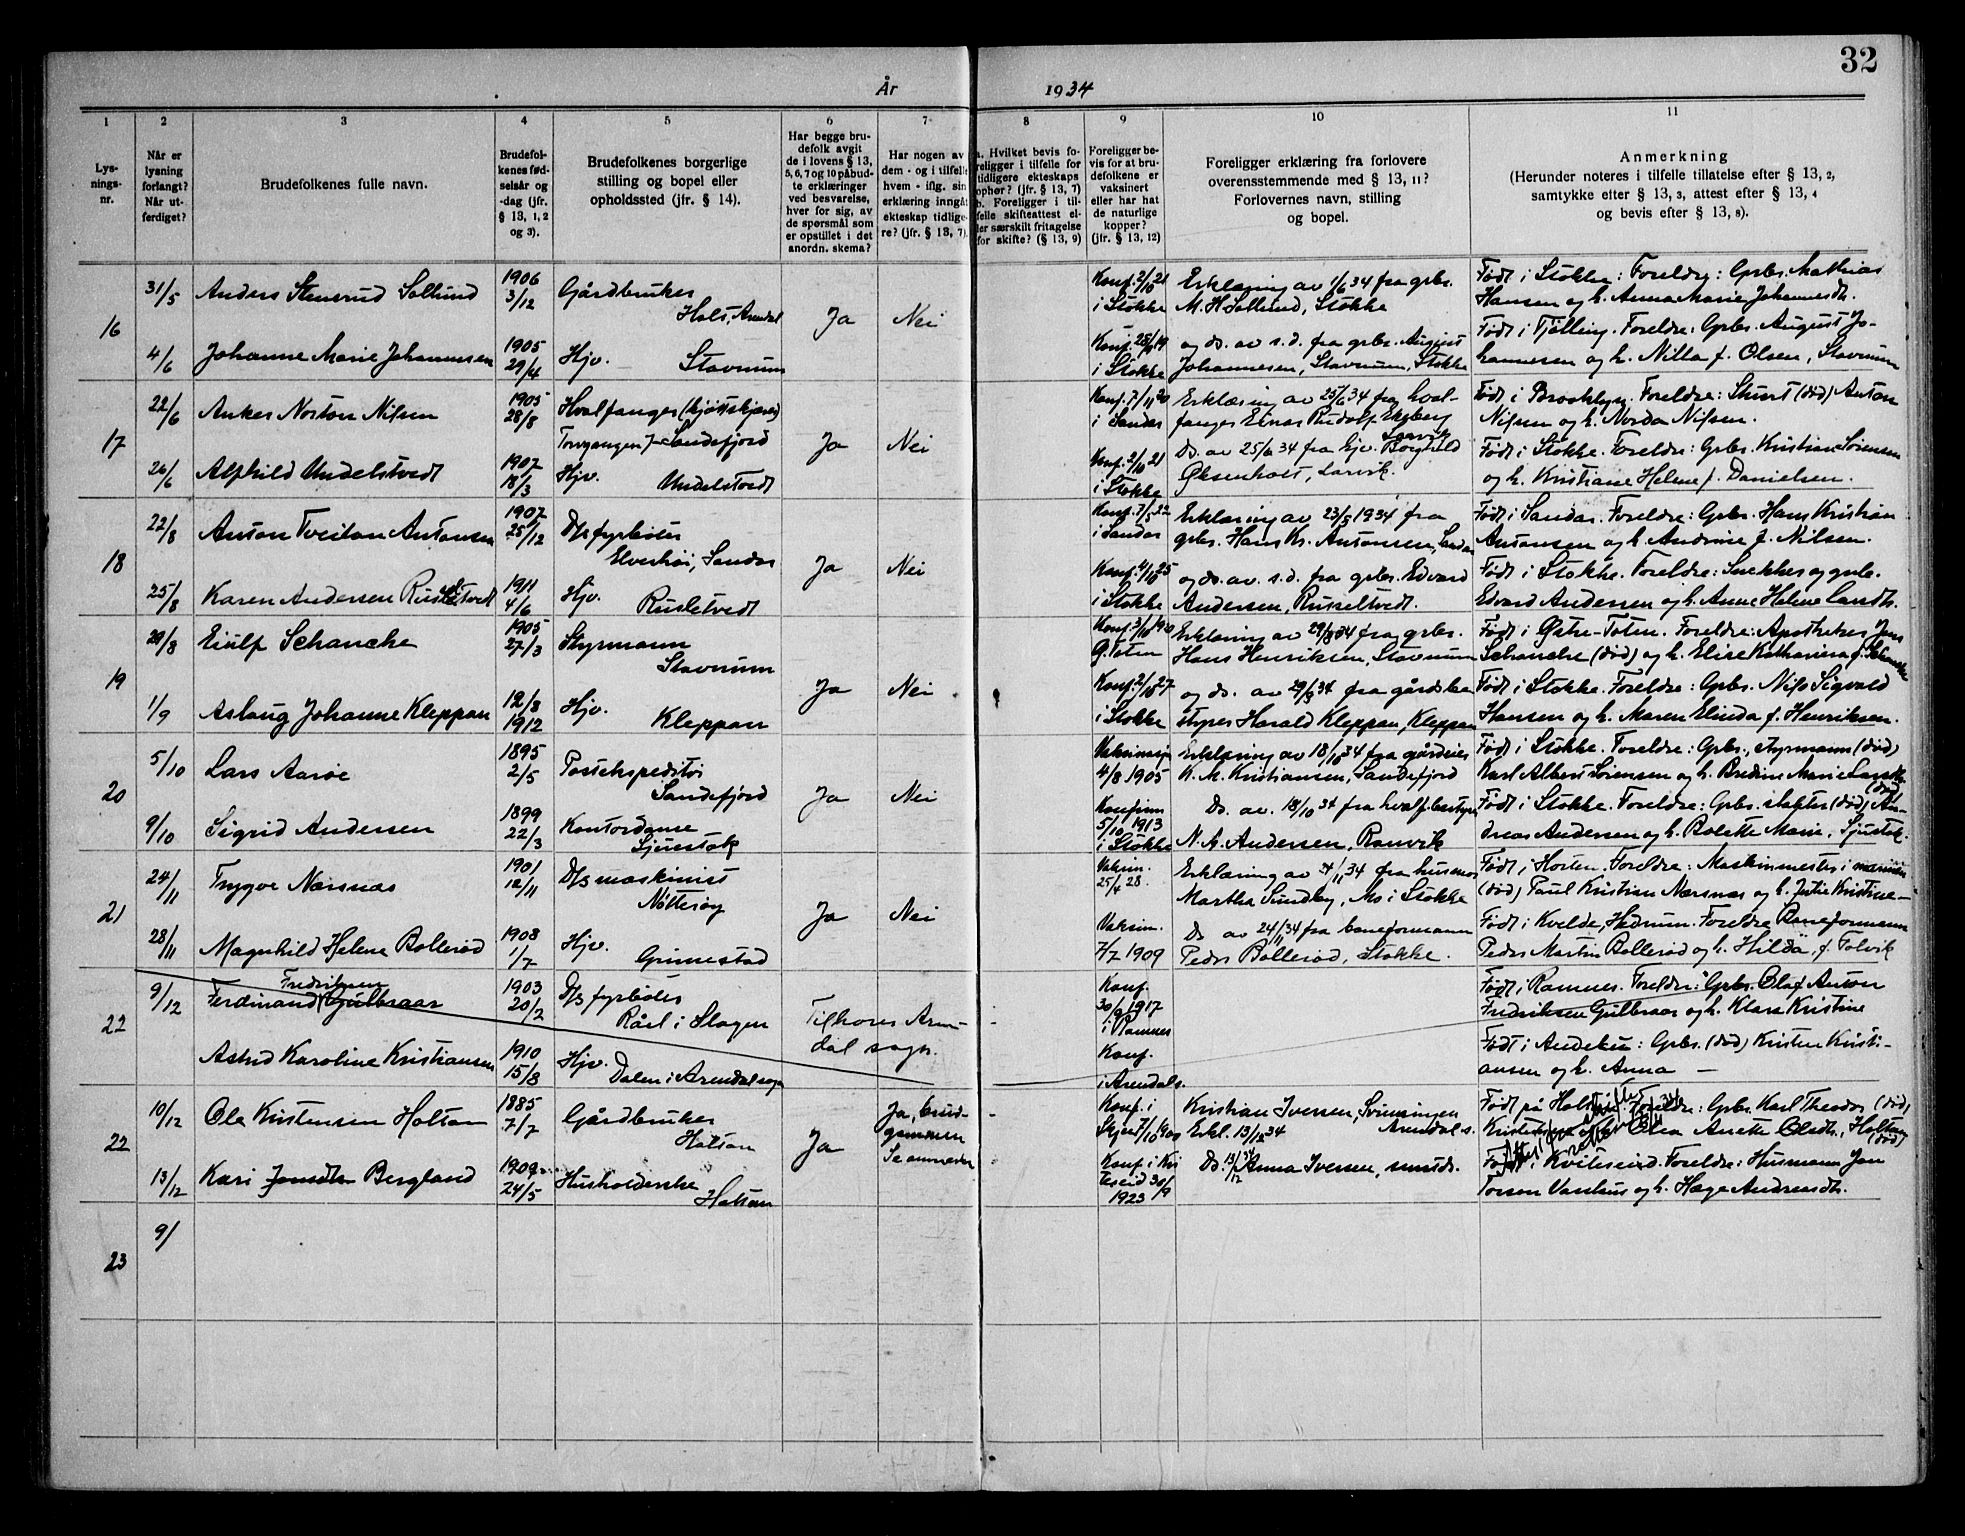 32
År 1934
1 2 3 4 5 6 7 8 9 10 11
Lys-
nings-
nr.
Når er
lysning
forlangt?
Når ut-
ferdiget?
Brudefolkenes fulle navn.
Brudefol-
kenes fød-
selsår og
-dag (jfr.
§ 13, 1, 2
og 3).
Brudefolkenes borgerlige
stilling og bopel eller
opholdssted (jfr. § 14).
Har begge bru-
defolk avgit
de i lovens § 13,
5, 6, 7 og 10 påbud-
te erklæringer
ved besvarelse,
hver for sig, av
de spørsmål som
er opstillet i det
anordn. skema?
Har nogen av
dem - og i tilfelle
hvem - iflg. sin
erklæring inngåt
ekteskap tidlige-
re? (jfr. § 13, 7).
a. Hvilket bevis fo-
religger i tilfelle for
tidligere ekteskaps
ophør? (jfr. § 13, 7)
b. Foreligger i til-
felle skifteattest el-
ler særskilt fritagelse
for skifte? (§ 13, 9)
Foreligger be-
vis for at bru-
defolkene er
vaksinert
eller har hat
de naturlige
kopper?
(jfr. § 13, 12)
Foreligger erklæring fra forlovere
overensstemmende med § 13, 11?
Forlovernes navn, stilling
og bopel.
Anmerkning
(Herunder noteres i tilfelle tillatelse efter § 13, 2,
samtykke efter § 13, 3, attest efter § 13, 4
og bevis efter § 13, 8).
16
31/5 Anders Stenerud Sollund 1906 3/12 Gårdbruker
Holt, Arendal Ja Nei
Konf. 2/10 21 i Stokke
Erklæring av 1/6 34 fra grbr.
M. H. Sollund, Stokke
Født i Stokke. Foreldre: Grbr. Mathias
Hansen og h. Anna Marie Johannesdt.
4/6 Johanne Marie Johannesen 1905 29/4 Hjv. Stavnum
i Stokke
og do. av s.d. fra grbr. August
Johannesen, Stavnum, Stokke
Født i Tjølling. Foreldre: Grbr. August Jo-
hannesen og h. Nilla f. Olsen, Stavnum
17
22/6 Anker Norton Nilsen 1905 28/8 Hvalfanger (kjøttskjærer)
Sandefjord Ja Nei
Konf. 7/11 20 i Sandar
Erklæring av 25/6 34 fra hval-
fanger Einar Rudolf Ekeberg
Larvik
Født i Brooklyn. Foreldre: Stuert (død) Anton
Nilsen og h. Norda Nilsen.
26/6 Alfhild Undelstvedt 1907 18/3 Hjv. Undelstvedt
Konf. 2/10 21 i Stokke
Do. av 25/6 34 fra hjv. Borghild
Øksenholt, Larvik.
Født i Stokke. Foreldre: Grbr. Kristian Sørensen
og h. Kristiane Helene f. Danielsen.
18
22/8 Anton Tveitan Antonsen 1907 25/12 D/s fyrbøter
Elverhøi, Sandar Ja Nei
Konf. 7/5 22 i Sandar
Erklæring av 23/8 1934 fra
grbr. Hans Kr. Antonsen, Sandar
Født i Sandar. Foreldre: Grbr. Hans Kristian
Antonsen og h. Andrine f. Nilsen.
25/8 Karen Andersen Russeltvedt 1911 4/6 Hjv. Rusletvedt
Konf. 4/10 25 i Stokke
og do. av s.d. fra grbr. Edvard
Andersen, Russeltvedt.
Født i Stokke. Foreldre: Snekker og grbr.
Edvard Andersen og h. Anne Helene Larsdt.
19
29/8 Eiulf Schancke 1905 27/3 Styrmann
Stavnum Ja Nei
Konf. 3/10 1920 Ø. Toten
Erklæring av 29/8 34 fra grbr.
Hans Henriksen, Stavnum
Født i Østre-Toten. Foreldre: Apotheker Jens
Schancke (død) og h. Elise Katharina f. Schancke
1/9 Aslaug Johanne Kleppan 12/8 1912 Hjv. Kleppan
Konf. 2/10 27 i Stokke
og do. av 29/8 34 fra gårdsbe
styrer Harald Kleppan, Kleppan
Født i Stokke. Foreldre: Grbr. Nils Sigvald
Hansen og h. Maren Elinda f. Henriksen.
20
5/10 Lars Aarøe 1895 2/5 Postekspeditør
Sandefjord Ja Nei
4/8 1905
Erklæring av 18/10 34 fra gårdeier
K. M. Kristiansen, Sandefjord
Født i Stokke. Foreldre: Grbr., styrmann (død)
Karl Albert Sørensen og h. Bredine Marie Larsdt.
(død)
9/10 Sigrid Andersen 1899 22/3 Kontordame
Sjuestok
Konfirm 5/10 1913 i Stokke
Do. av. 18/10 34 fra hvalf.bestyrer
N. A. Andersen, Ranvik
Født i Stokke. Foreldre: Grbr. slakter (død) An-
dreas Andersen og h. Bolette Marie, Sjustok.
21
24/11 Trygve Nærsnæs 1901 12/11 D/s maskinist
Nøtterøy Ja Nei
Vaksin. 25/4 28.
Erklæring av 24/11 34 fra husmor
Martha Sundby, Mo i Stokke
Født i Horten. Foreldre: Maskinmester i marinen
(død) Paul Kristian Nærsnæs og h. Julie Kristine—
28/11 Magnhild Helene Bollerød 1908 1/7 Hjv. Grimestad
Vaksin. 7/7 1909
Do av 24/11 34 fra baneformann
Peder Bollerød, Stokke.
Født i Kvelde, Hedrum. Foreldre Baneformann
Peder Martin Bollerød og h. Hilda, f. Tolvik
22
9/12 Ferdinand Fredriksen Gulbraar 1903 20/2 D/s fyrbøter
Råel i Slagen Tilhører Aren-
dal sogn.
Konf. 30/9 1917 i Ramnes
Født i Ramnes. Foreldre: Grbr. Olaf Anton
Fredriksen Gulbraar og h. Klara Kristine
Astrid Karoline Kristiansen 1910 15/8 Hjv. Dalen i Arendal sogn
Konf. i Arendals.
Født i Andebu: Grbr. (død) Kristen Kristi-
ansen og h. Anna —
22
10/12 Ole Kristensen Holtan 1885 7/7 Gårdbruker
Holtan Ja Ja, brud-
gommen
Se anmerkn
Konf. i Skjee 7/10 1900
Kristian Iversen, Sviningen
Erkl. 13/12 34 Arendal s.
Født på Holtan. Foreldre: Grbr. Karl Theodor (død)
Olea Anette Olsdt., Holtan
(død)
13/12 Kari Jonsdtr Bergland 1909 24/5 Husholderske
Holtan
Konf. i Kvi
teseid 30/9
1923
Do. 13/12 34 Anna Iversen, smstds.
Født i Kviteseid. Foreldre: Husmann Jon
Torson Vasshus og h. Hæge Andresdt.
23 9/